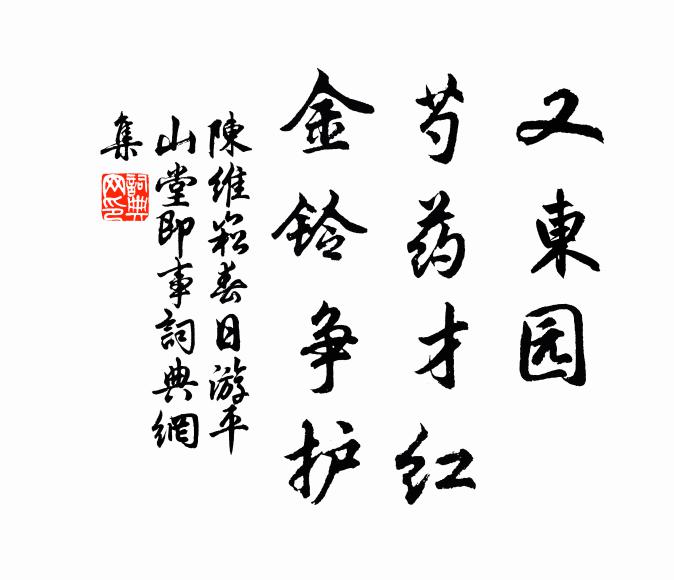 又東园
芍药才红
金铃争护
陳維崧春日游平
山堂即事詞典網
集
詞典
网印